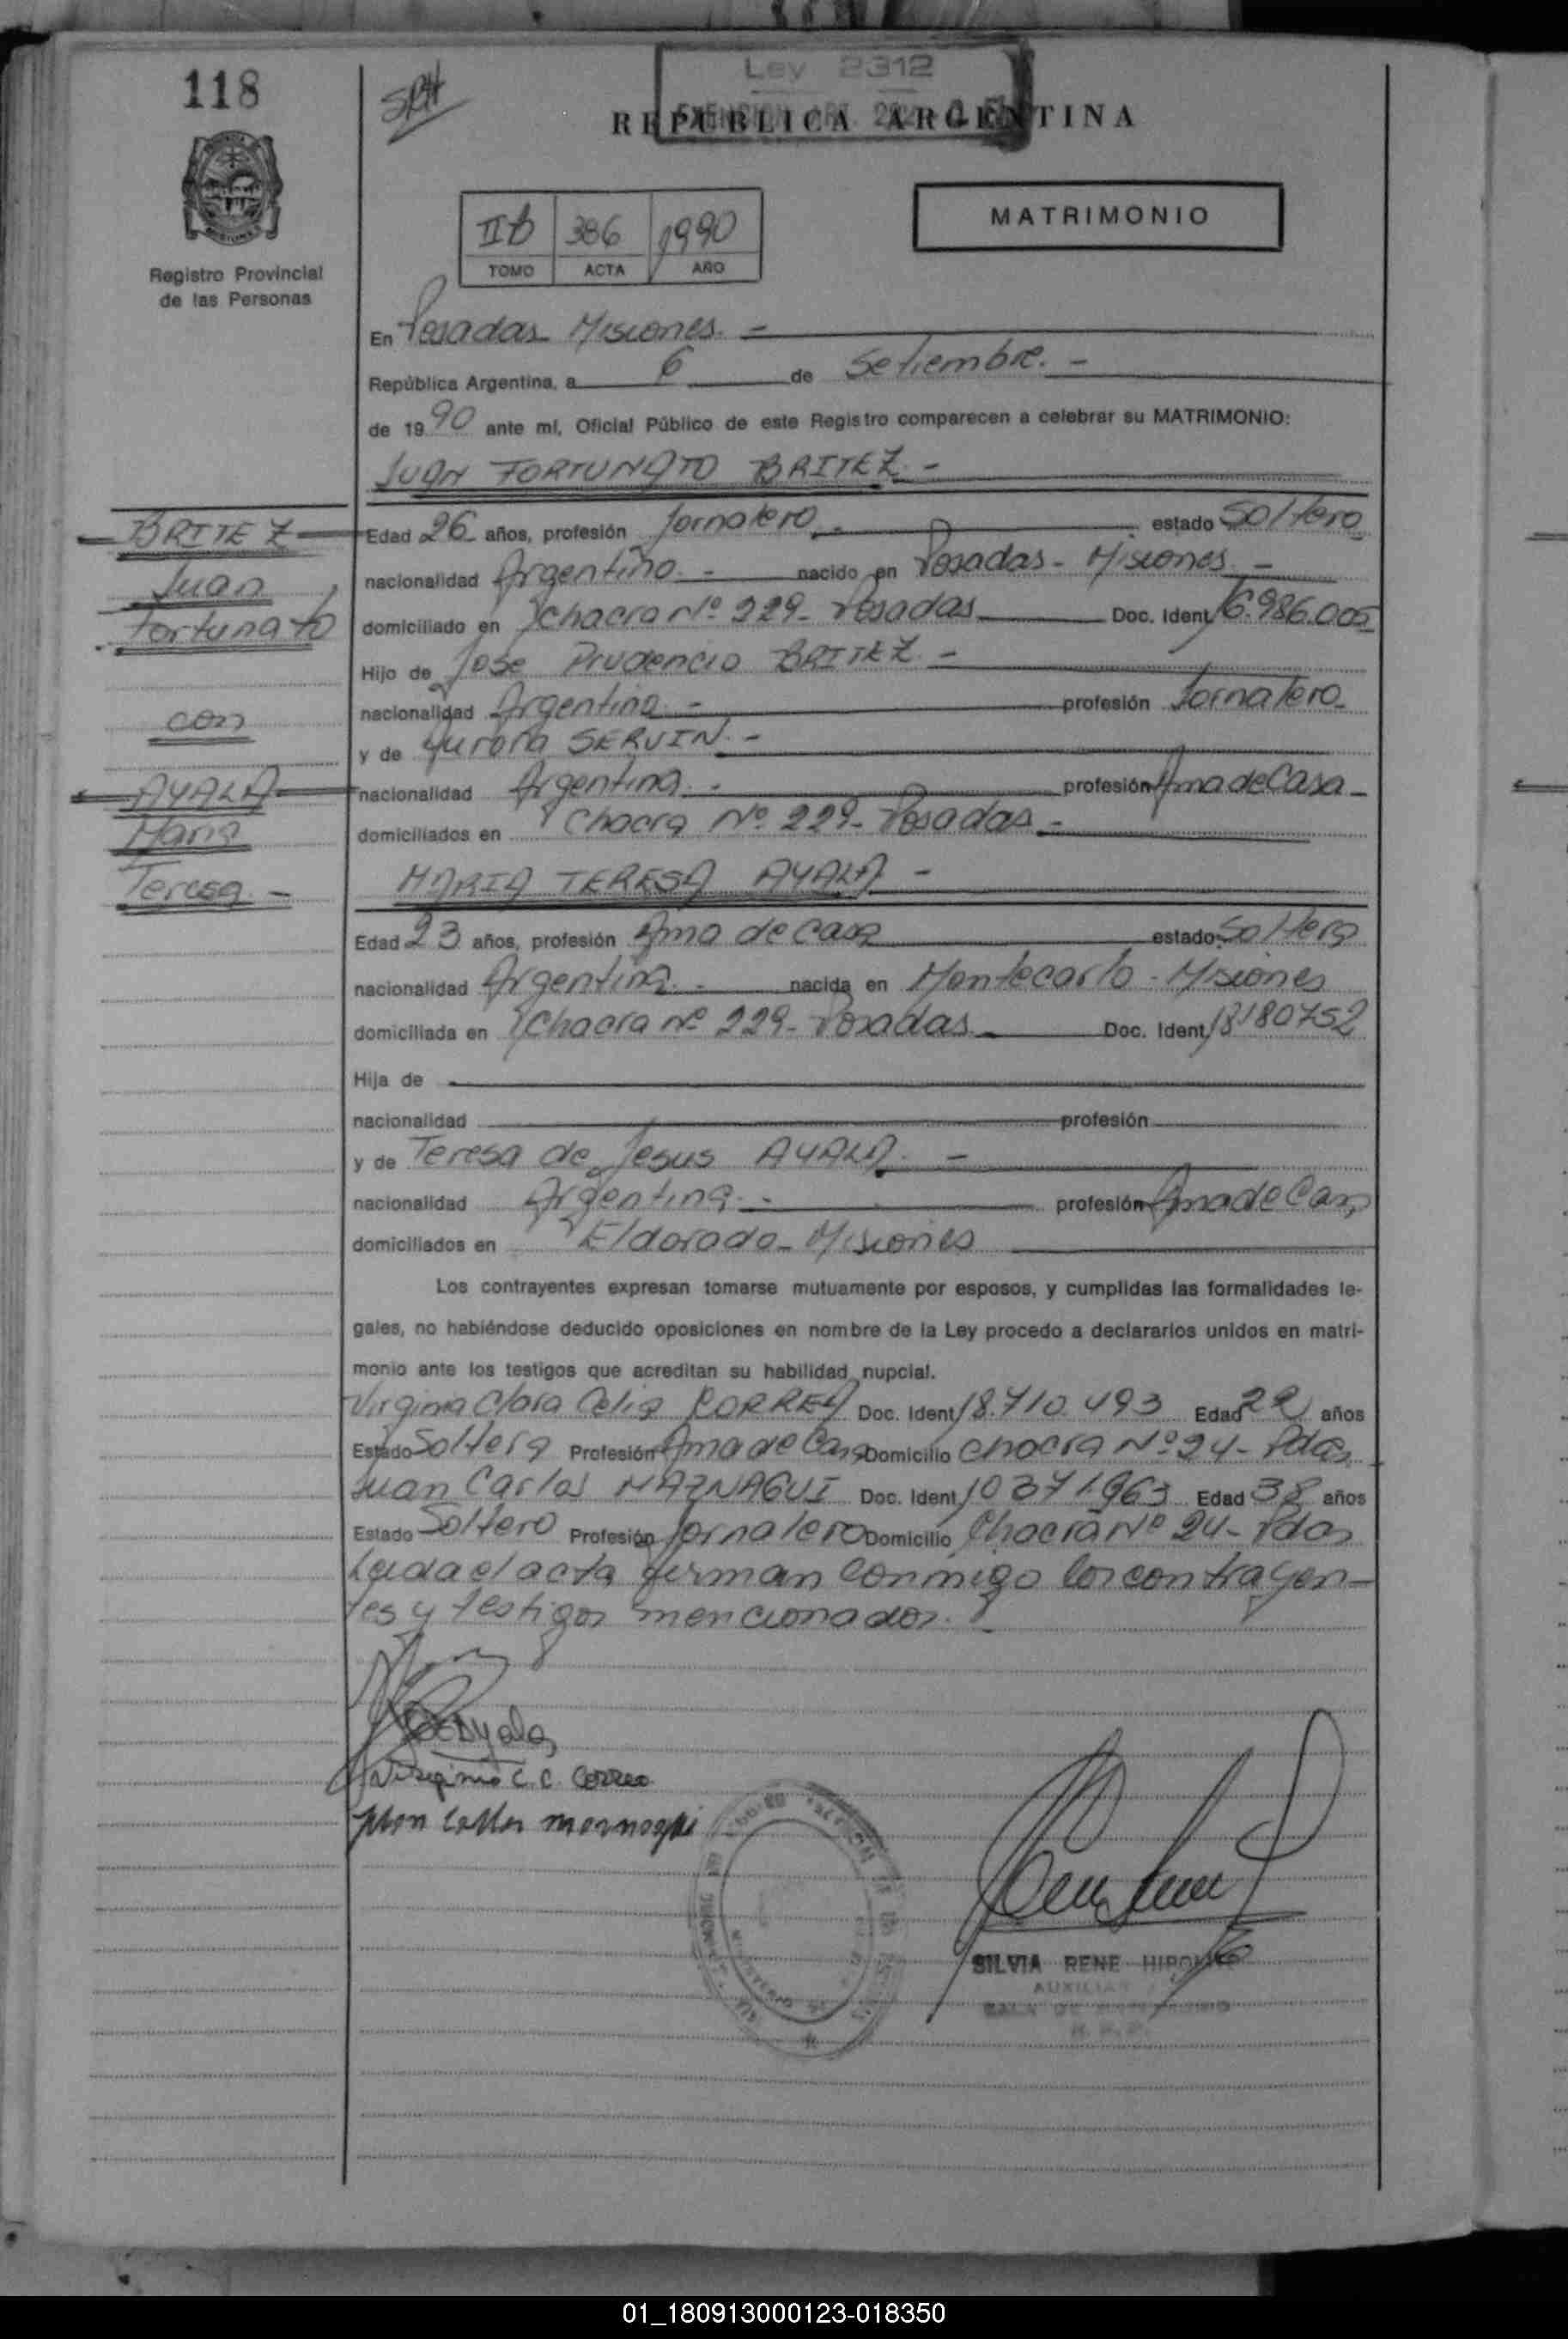 118
SRH
Ley 2312
REPUBLICA ARGENTINA
MATRIMONIO
IIb 386 1990
TOMO ACTA AÑO
Registro Provincial
de las Personas
En Posadas Misiones. -
República Argentina, a 6 de Setiembre. -
de 1990 ante mí, Oficial Público de este Registro comparecen a celebrar su MATRIMONIO:
JUAN FORTUNATO BRITEZ. -
BRITEZ
Juan
Fortunato
con
AYALA
Maria
Teresa. -
Edad 26 años, profesión Jornalero. - estado Soltero
nacionalidad Argentino. - nacido en Posadas - Misiones. -
domiciliado en Chacra Nº 229 - Posadas Doc. Ident. 16.986.005
Hijo de Jose Prudencio BRITEZ. -
nacionalidad Argentina. - profesión Jornalero -
y de Aurora SERVIN. -
nacionalidad Argentina. - profesión Ama de Casa -
domiciliados en Chacra Nº 229 - Posadas -
MARIA TERESA AYALA -
Edad 23 años, profesión Ama de Casa estado Soltera
nacionalidad Argentina. - nacida en Montecarlo - Misiones
domiciliada en Chacra nº 229 - Posadas Doc. Ident. 18180752
Hija de
nacionalidad profesión
y de Teresa de Jesus AYALA. -
nacionalidad Argentina. - profesión Ama de Casa
domiciliados en Eldorado - Misiones
Los contrayentes expresan tomarse mutuamente por esposos, y cumplidas las formalidades le-
gales, no habiéndose deducido oposiciones en nombre de la Ley procedo a declararlos unidos en matri-
monio ante los testigos que acreditan su habilidad nupcial.
Virginia Clara Celia CORREA Doc. Ident. 18.710.493 Edad 22 años
Estado Soltera Profesión Ama de Casa Domicilio Chacra Nº 24 - Pdas
Juan Carlos MAZNAGUI Doc. Ident. 10 371.963 Edad 38 años
Estado Soltero Profesión Jornalero Domicilio Chacra Nº 24 - Pdas
Leida el acta firman conmigo los contrayen-
tes y testigos mencionados. -
Ayala
Virginia C. C. Correa
SILVIA RENE HIPOLITO
AUXILIAR
01_180913000123-018350